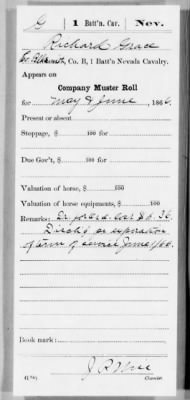 G 1 Batt'n. Cav. Nev.
Richard Grace
Co. B, 1 Batt'n Nevada Cavalry.
Appears on
Company Muster Roll
for May & June, 1866.
Present or absent
Stoppage, $ 100 for
Due Gov't, $ 100 for
Valuation of horse, $ 100
Valuation of horse equipments, $ 100
Remarks:
Disch'd on expiration
of term of service June 1/66.
Book mark:
(176) Copyist.